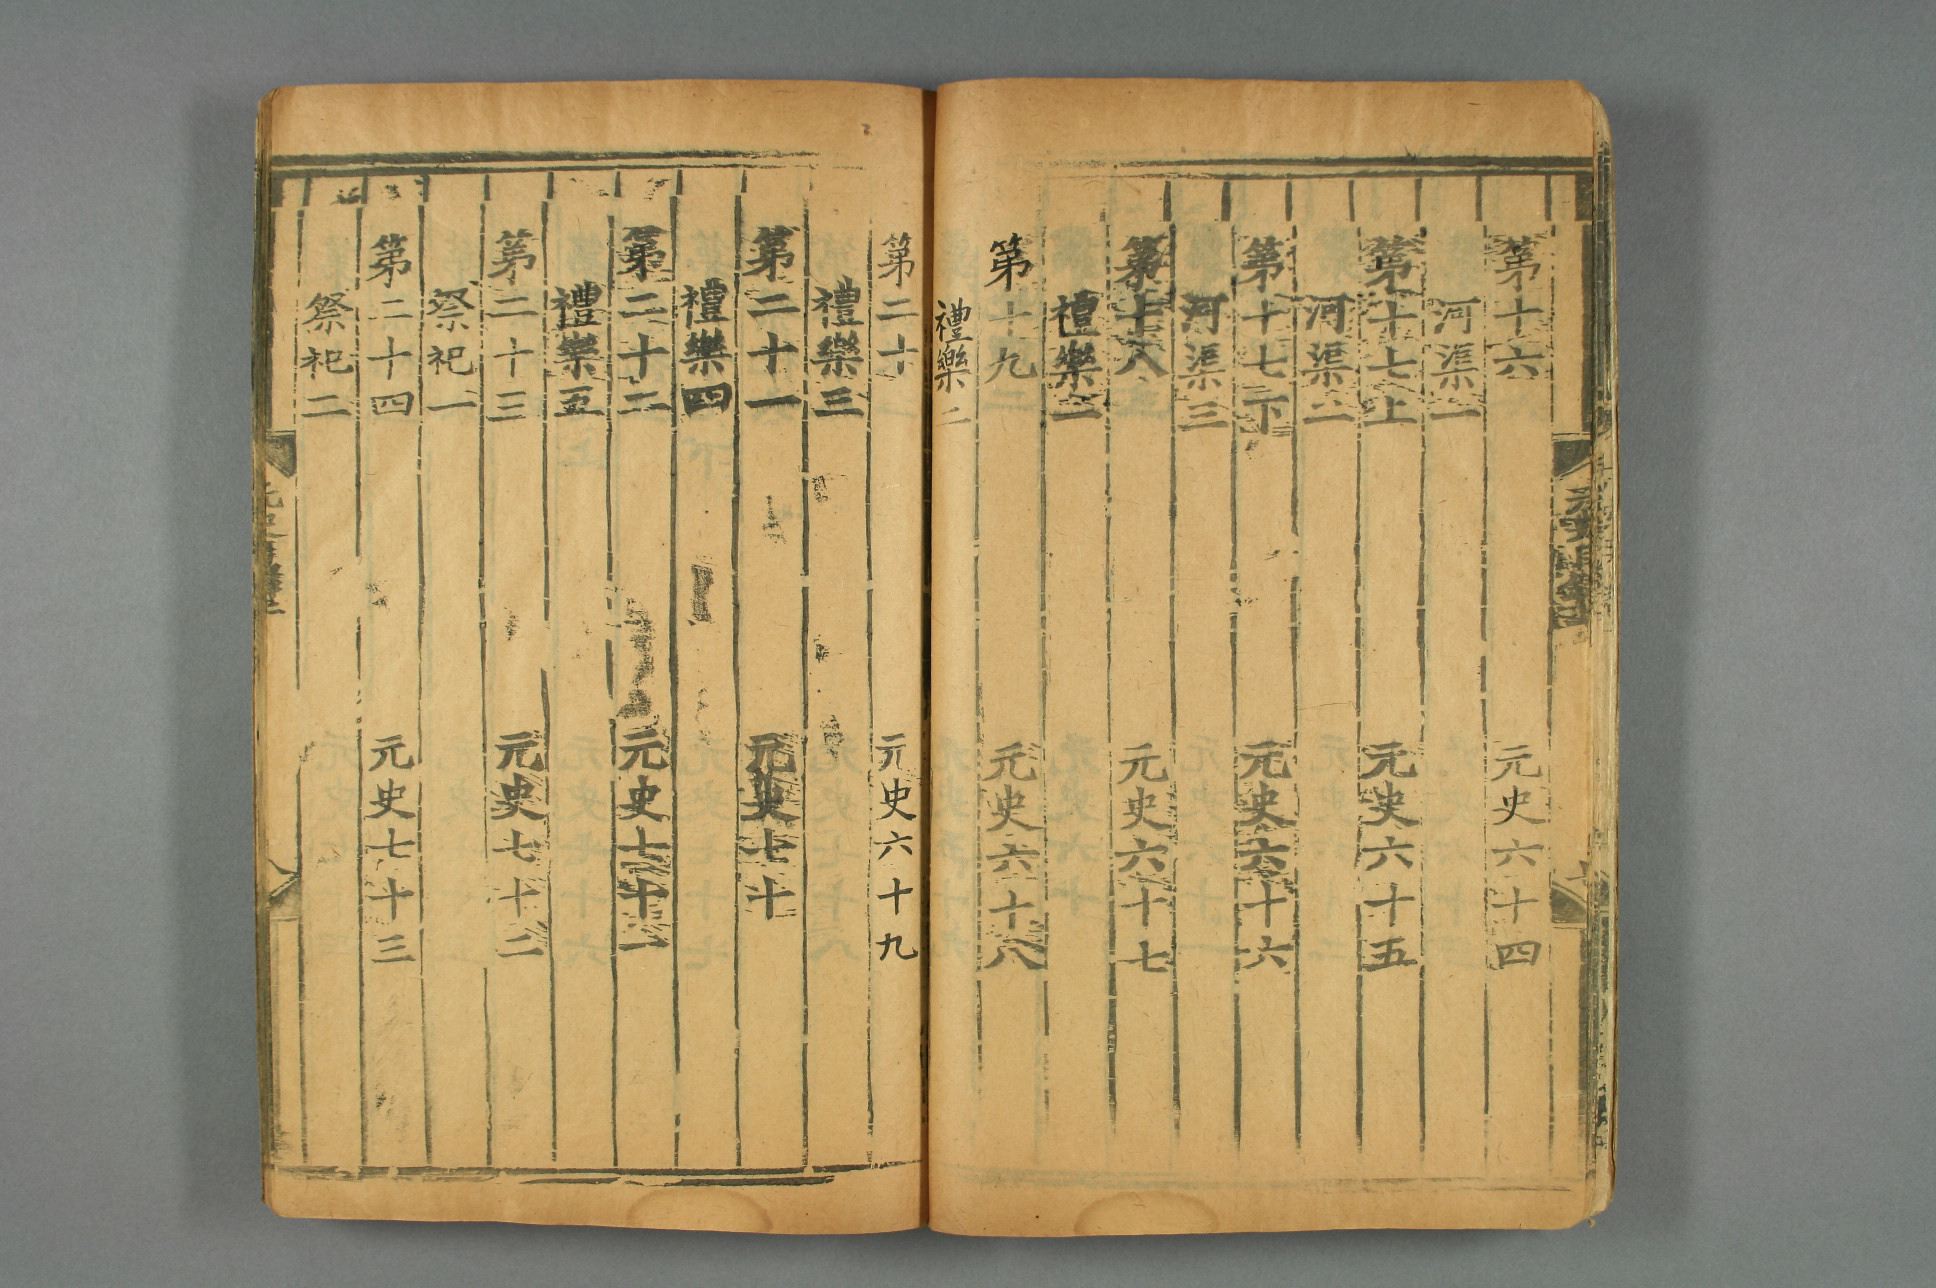 第十六 元史六十四
河渠一
第十七上 元史六十五
河渠二
第十七下 元史六十六
河渠三
第十八 元史六十七
禮樂一
第十九 元史六十八
禮樂二
第二十 元史六十九
禮樂三
第二十一 元史七十
禮樂四
第二十二 元史七十一
禮樂五
第二十三 元史七十二
祭祀一
第二十四 元史七十三
祭祀二